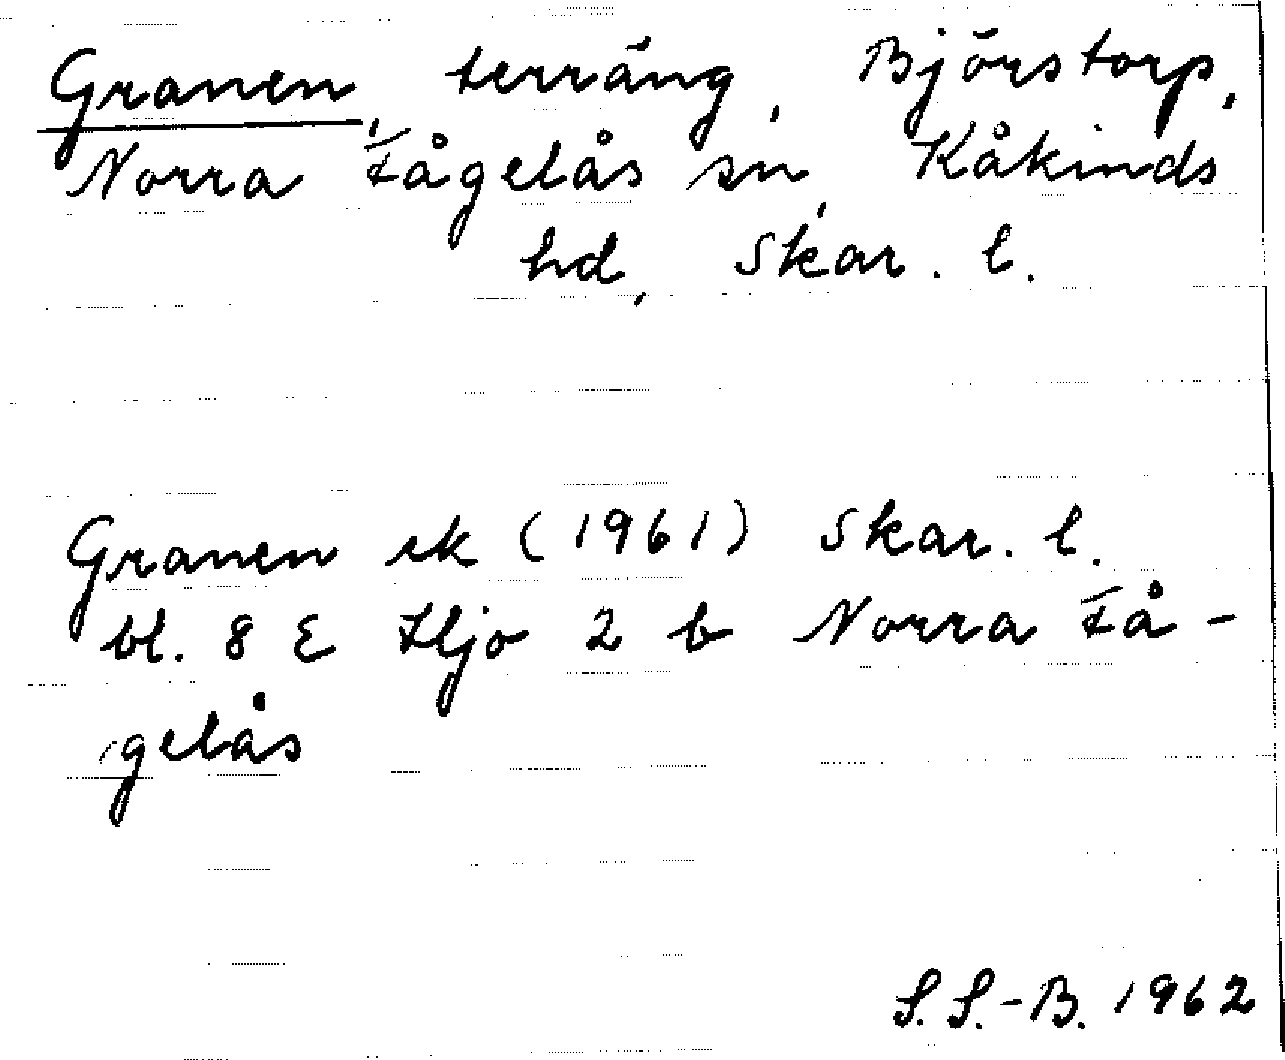 Granen, terräng, Björstorp,
Norra Fågelås sn, Kåkinds
hd, Skar. l.
Granen ek (1961) Skar. l.
bl. 8 E Hjo 2 b Norra Få-
gelås
S. S.-B. 1962